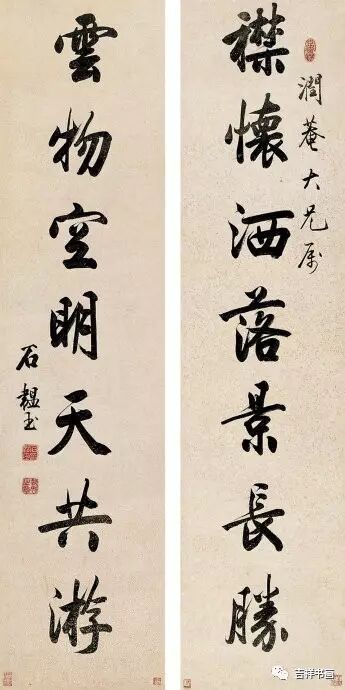 襟懷洒落景長勝
潤菴大兄屬
雲物空明天共游
石韞玉
吉祥书画